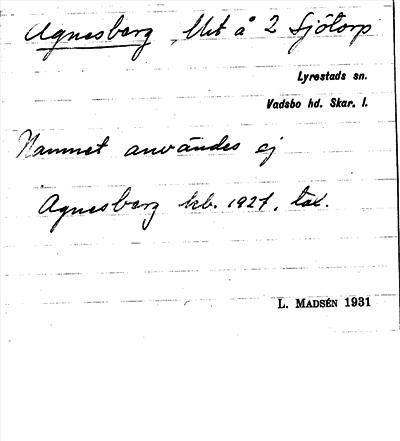 Agnesberg, Ut å 2 Sjötorp
Lyrestads sn.
Vadsbo hd. Skar. l.
Namnet användes ej
Agnesberg kb. 1927, tal.
L. MADSÉN 1931